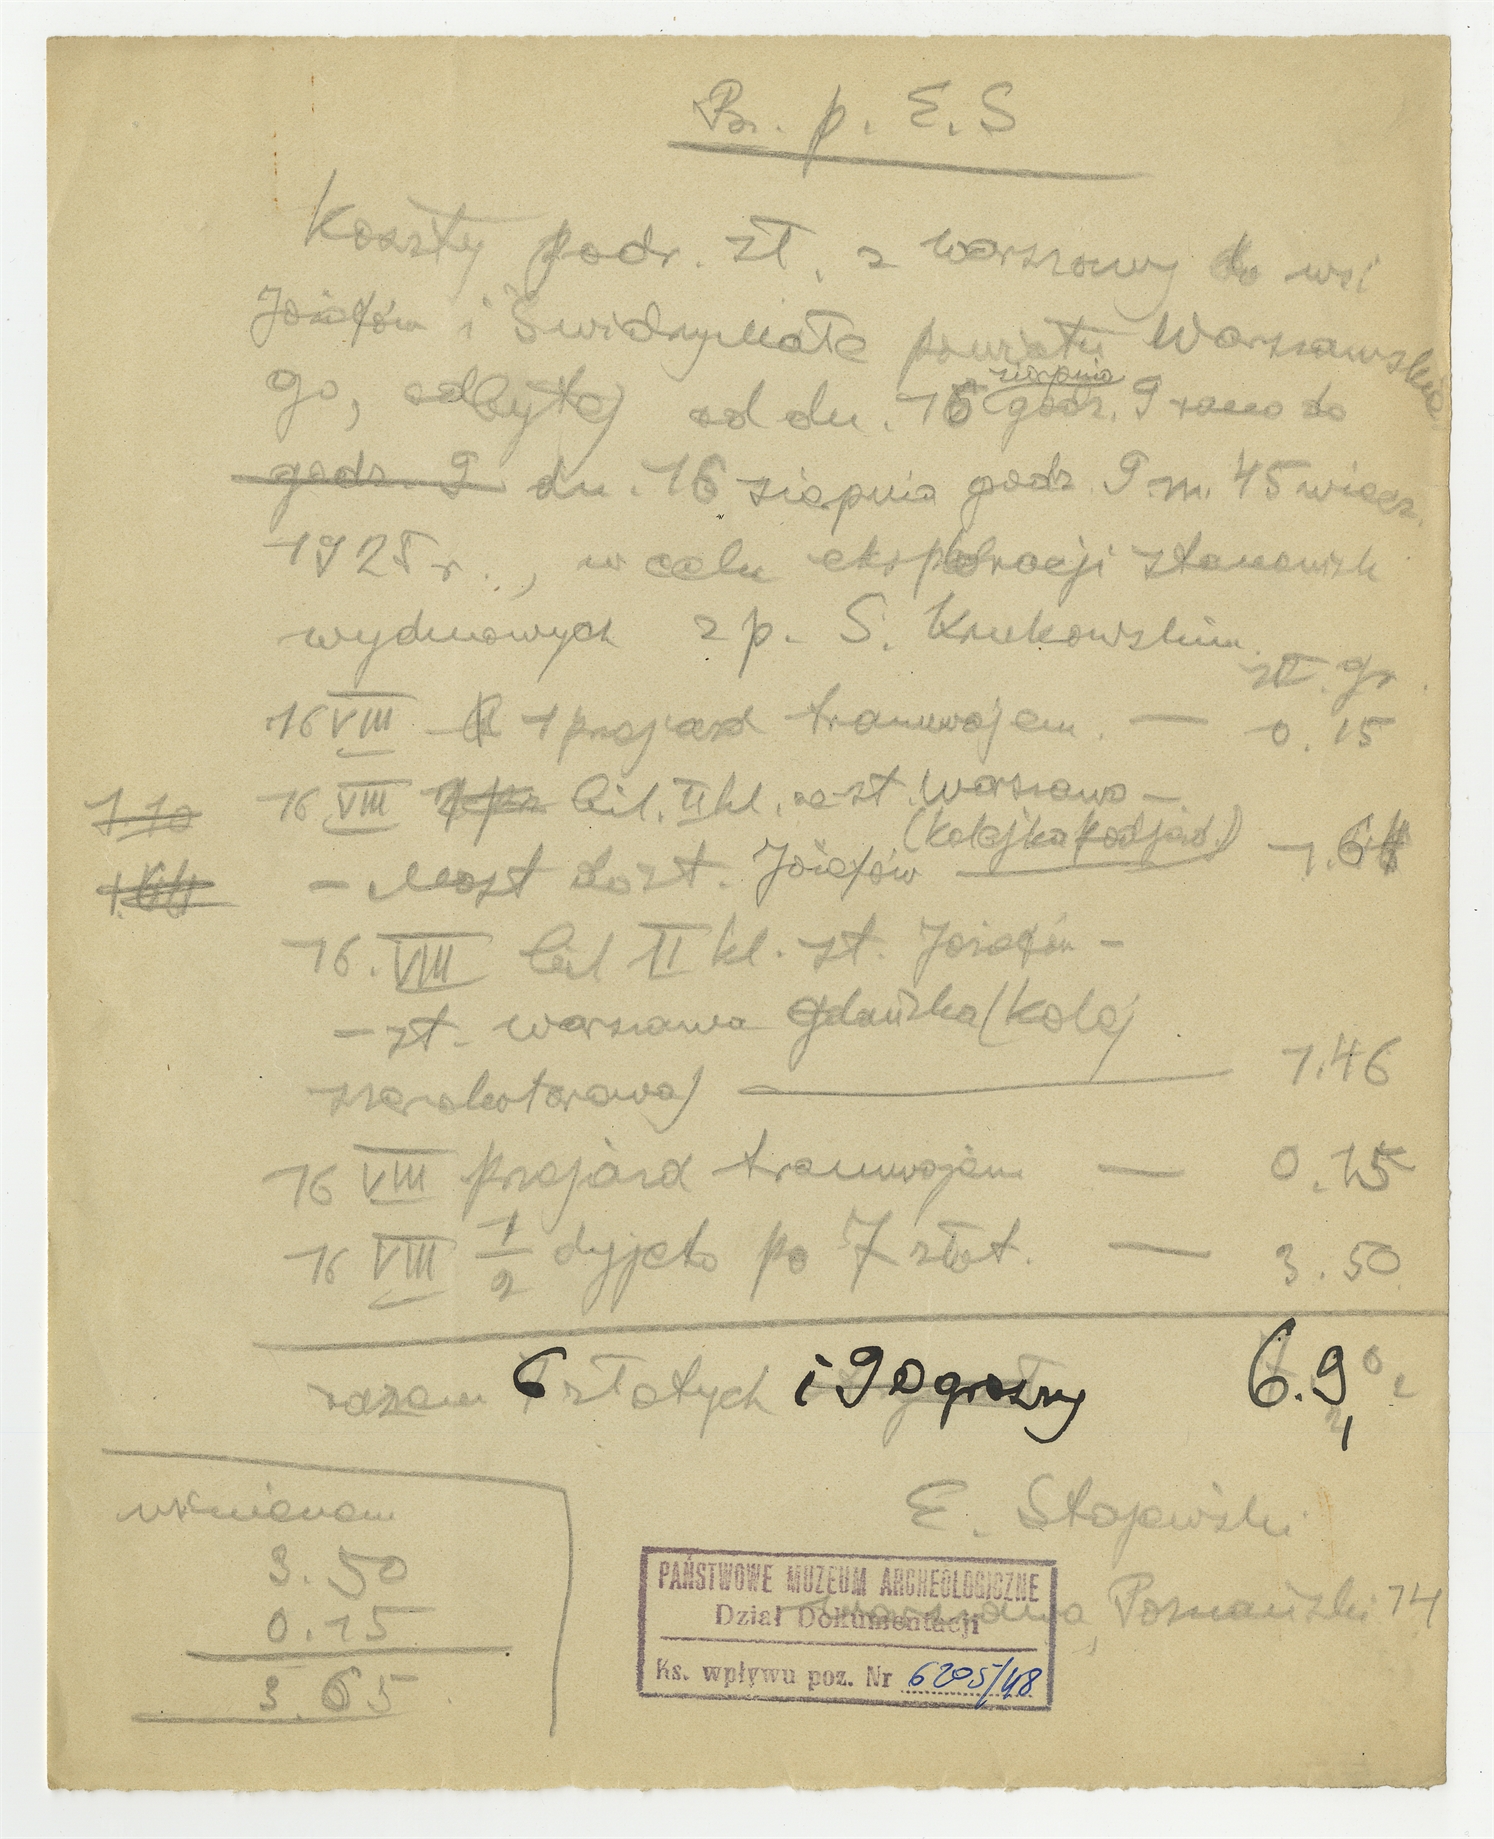 Br. p. E. S
Koszty podr. zł. z Warszawy do wsi
Józefów i Świdry Małe powiatu Warszawskie
go, odbytej od dn. 16 sierpnia godz. 9 rano do
godz. 9 dn. 16 sierpnia godz. 9 m. 45 wiecz.
1925 r., w celu eksploracji stanowisk
wydmowych z p. S. Krukowskim.
zł. gr.
16 VIII 1 przejazd tramwajem. — 0.15
1.10
16 VIII bil. II kl. ze st. Warszawa –
(kolejka podjazd.)
1.64
– Most do st. Józefów — 1.64
16. VIII bil II kl. st. Józefów –
– st. Warszawa Gdańska (kolej
szerokotorowa) — 1.46
16 VIII przejazd tramwajem — 0.15
16 VIII 1/2 dyjeta po 7 złot. — 3.50
razem 6 złotych i 90 groszny 6.90
E. Stajewski
Warszawa, Poznański 14
3.50
0.15
3.65
PAŃSTWOWE MUZEUM ARCHEOLOGICZNE
Dział Dokumentacji
Ks. wpływu poz. Nr 6205/48